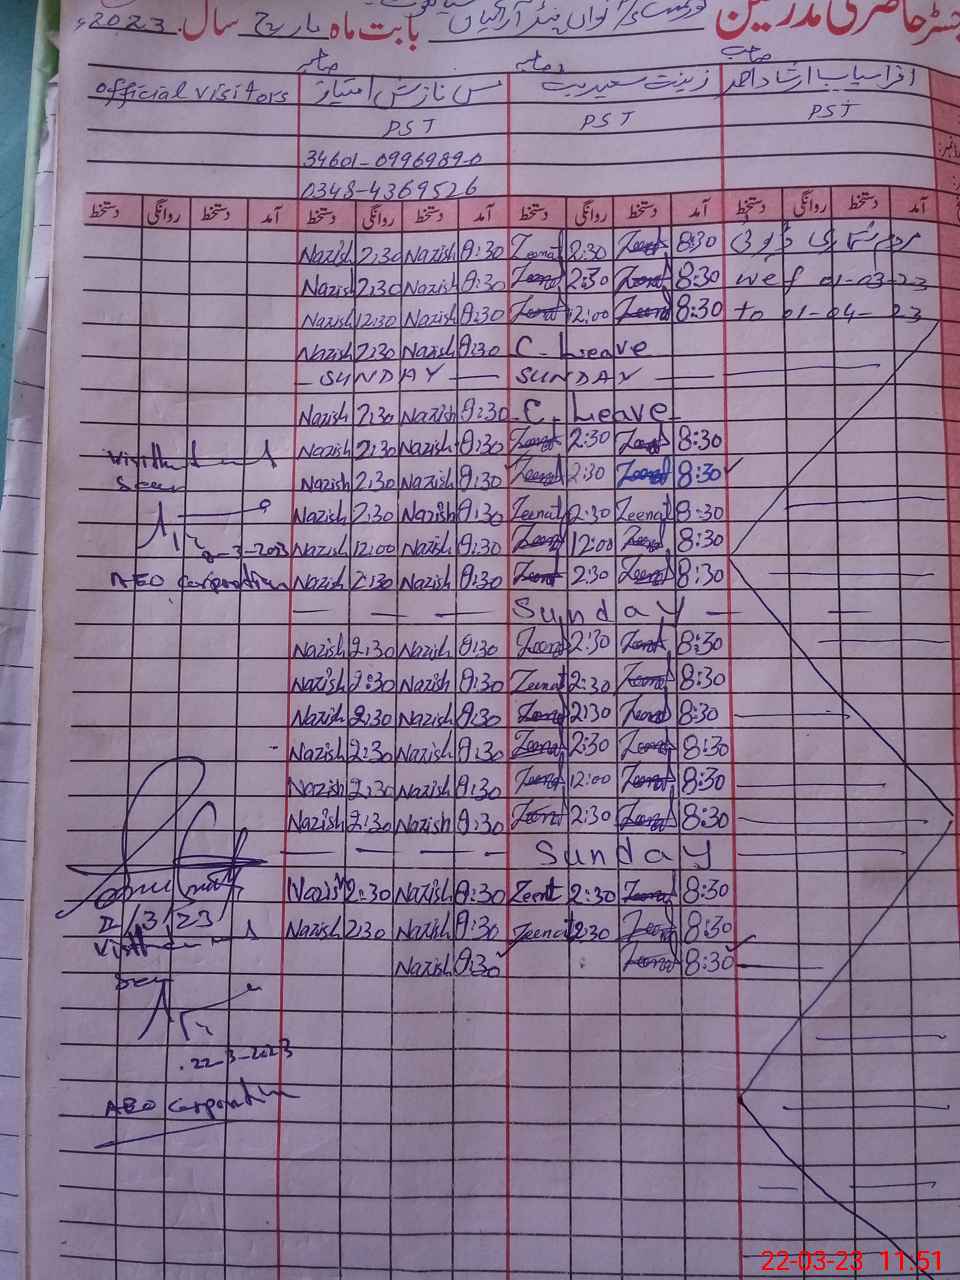 رجسٹر حاضری مدرسین بابت ماہ مارچ سال 2023ء
official visitors مس نازش امتیاز صاحبہ زینت سعید صاحبہ افراسیاب ارشاد احمد صاحب
PST PST PST
34601-0996989-0
0348-4369526
دستخط روانگی دستخط آمد دستخط روانگی دستخط آمد دستخط روانگی دستخط آمد دستخط روانگی دستخط آمد
Nazish 2:30 Nazish 8:30 Zeenat 2:30 Zeenat 8:30 مردم شماری ڈیوٹی
Nazish 2:30 Nazish 8:30 Zeenat 2:30 Zeenat 8:30 wef 01-03-23
Nazish 12:30 Nazish 8:30 Zeenat 12:00 Zeenat 8:30 to 01-04-23
Nazish 2:30 Nazish 8:30 C. Leave
SUNDAY SUNDAY
Nazish 2:30 Nazish 8:30 C. Leave
Nazish 2:30 Nazish 8:30 Zeenat 2:30 Zeenat 8:30
Nazish 2:30 Nazish 8:30 Zeenat 2:30 Zeenat 8:30
Nazish 2:30 Nazish 8:30 Zeenat 2:30 Zeenat 8:30
-3-2023 Nazish 12:00 Nazish 8:30 Zeenat 12:00 Zeenat 8:30
AEO Corporation Nazish 2:30 Nazish 8:30 Zeenat 2:30 Zeenat 8:30
Sunday
Nazish 2:30 Nazish 8:30 Zeenat 2:30 Zeenat 8:30
Nazish 2:30 Nazish 8:30 Zeenat 2:30 Zeenat 8:30
Nazish 2:30 Nazish 8:30 Zeenat 2:30 Zeenat 8:30
Nazish 2:30 Nazish 8:30 Zeenat 2:30 Zeenat 8:30
Nazish 2:30 Nazish 8:30 Zeenat 12:00 Zeenat 8:30
Nazish 2:30 Nazish 8:30 Zeenat 2:30 Zeenat 8:30
Sunday
Nazish 2:30 Nazish 8:30 Zeenat 2:30 Zeenat 8:30
Nazish 2:30 Nazish 8:30 Zeenat 2:30 Zeenat 8:30
Nazish 8:30 Zeenat 8:30
22-3-2023
AEO Corporation
22-03-23 11:51